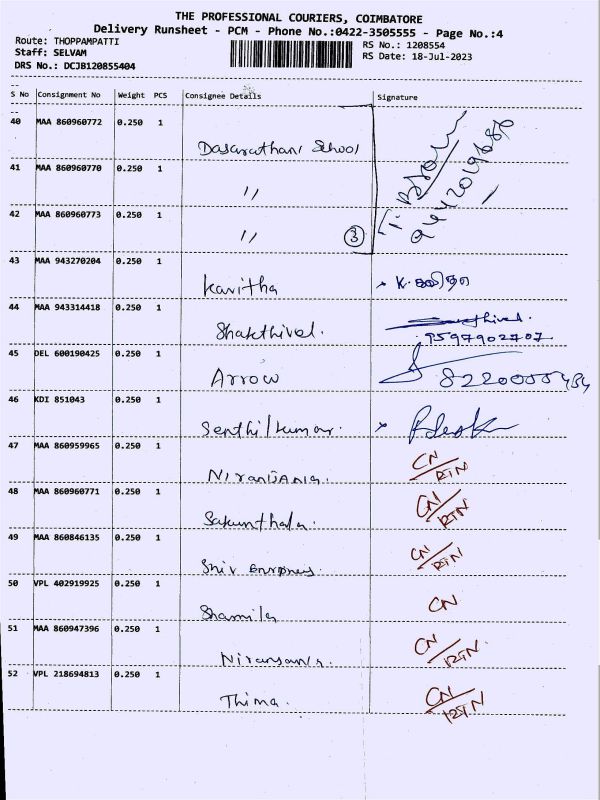 THE PROFESSIONAL COURIERS, COIMBATORE
Delivery Runsheet - PCM - Phone No.:0422-3505555 - Page No.:4
Route: THOPPAMPATTI
Staff: SELVAM
DRS No.: DCJB120855404
RS No.: 1208554
RS Date: 18-Jul-2023
S No Consignment No Weight PCS Consignee Details Signature
40 MAA 860960772 0.250 1
Dasarathani School
41 MAA 860960770 0.250 1
"
42 MAA 860960773 0.250 1
" 3
43 MAA 943270204 0.250 1
Kavitha
44 MAA 943314418 0.250 1
Shakthivel.
9597902707
45 DEL 600190425 0.250 1
Arrow
46 KDI 851043 0.250 1
Senthilkumar.
47 MAA 859959965 0.250 1
Niranjana. CN/RTN
48 MAA 860960771 0.250 1
Sakunthala. CN/RTN
49 MAA 860846135 0.250 1
Shiv CN/RTN
50 VPL 402919925 0.250 1
Shamila CN
51 MAA 860947396 0.250 1
CN/RTN.
52 VPL 218694813 0.250 1
Thima. CN/RTN